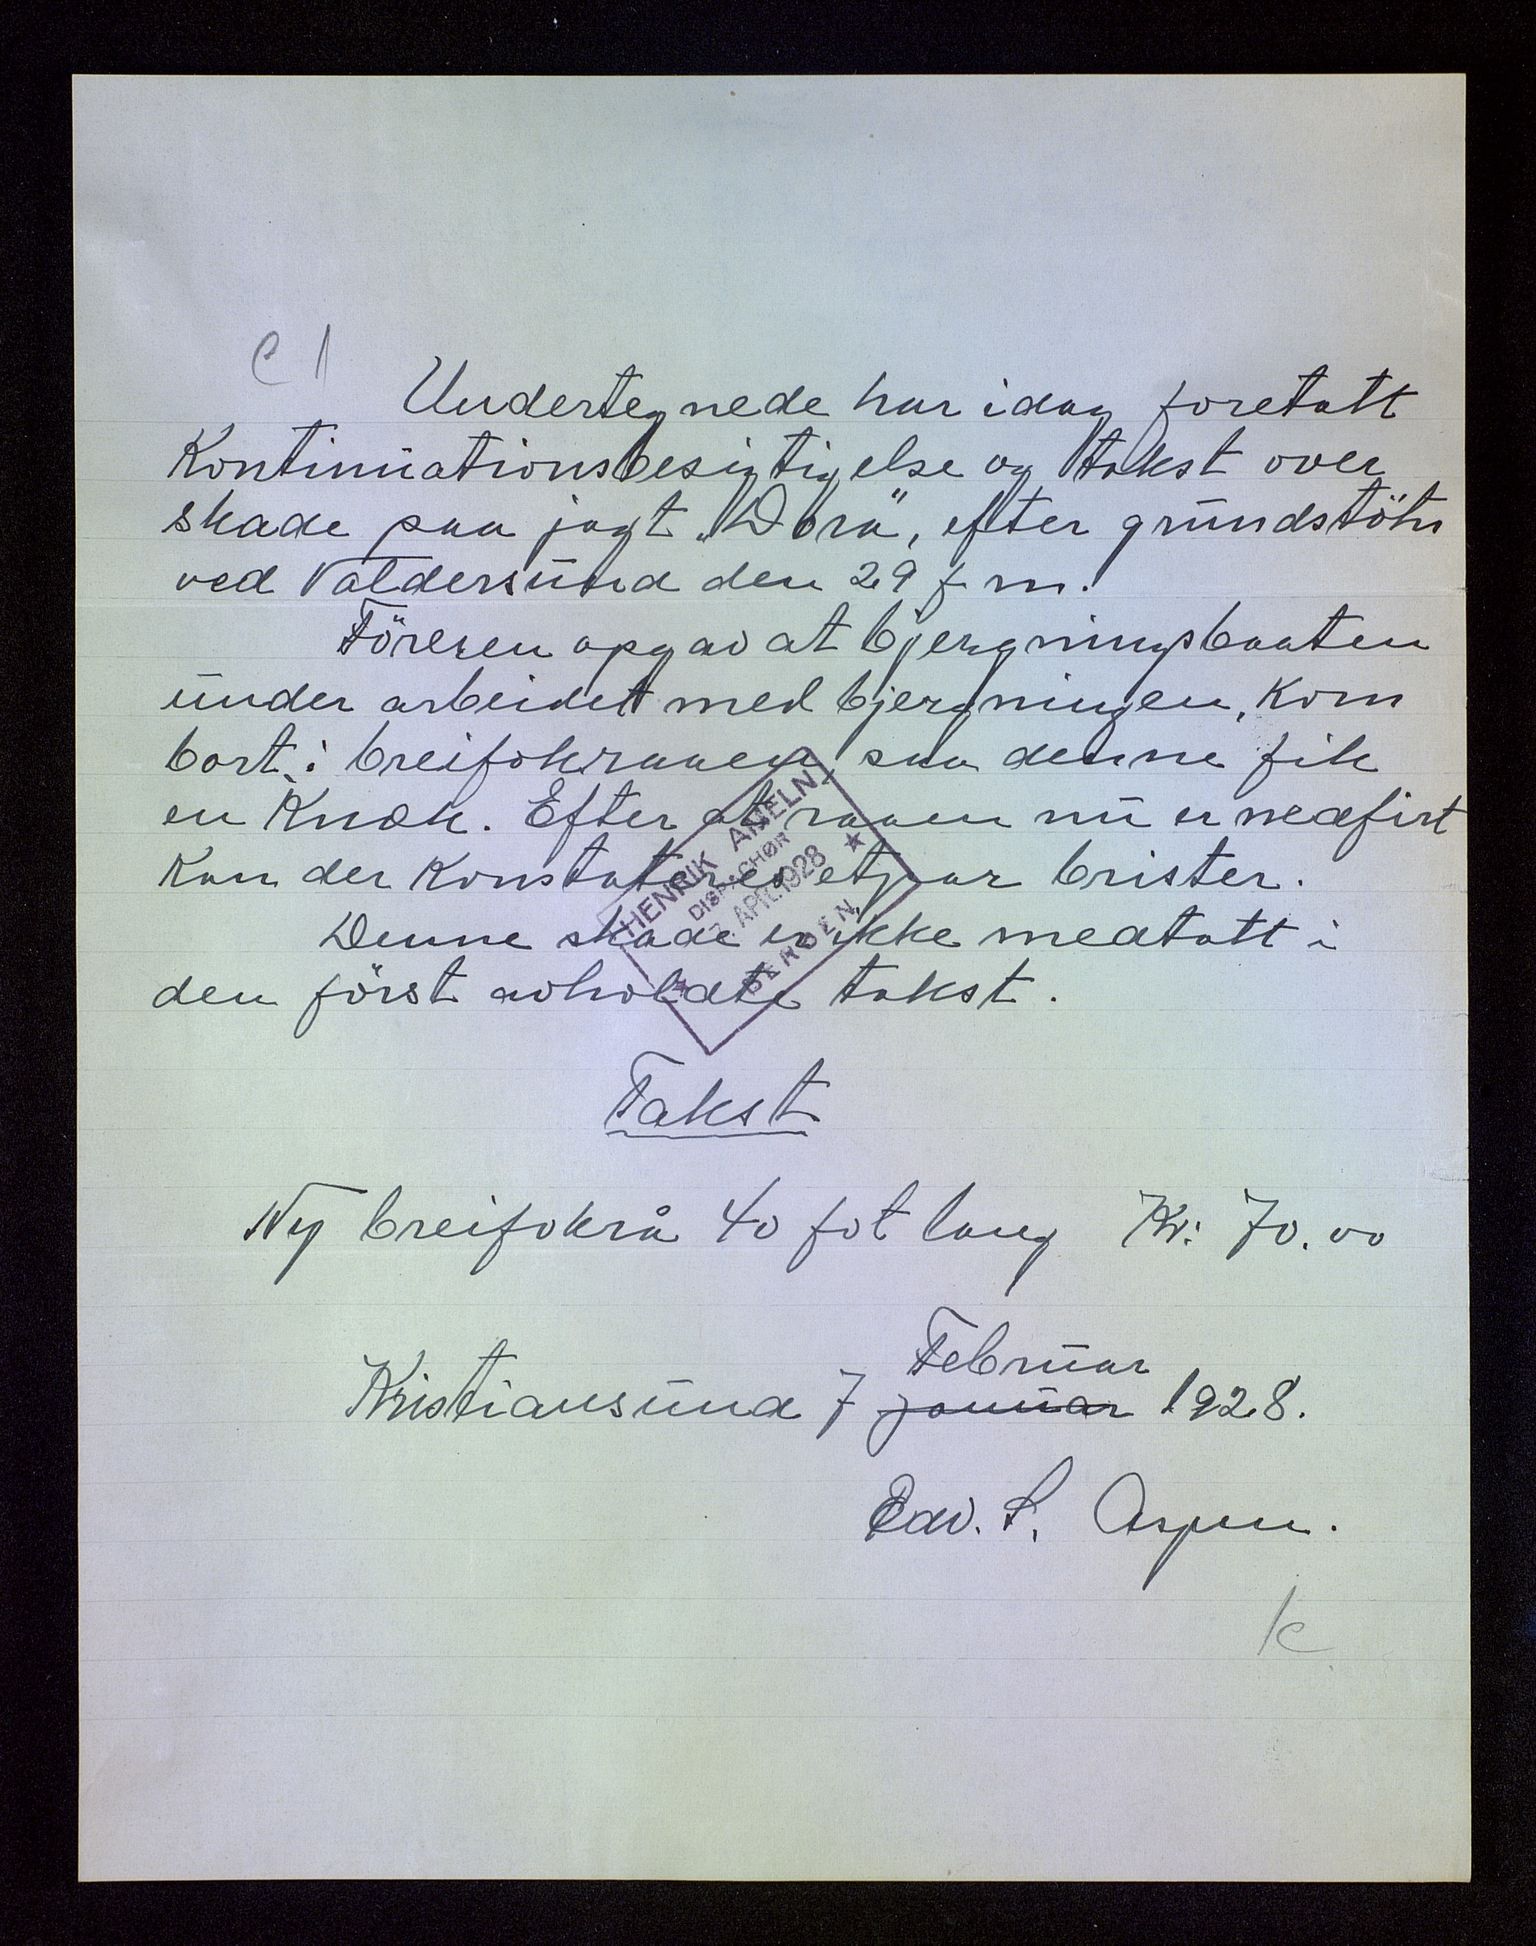 C 1
Undertegnede har idag foretatt
Kontinuationsbesigtigelse og takst over
skade paa jagt „Dora", efter grundstötn
ved Valdersund den 29 f m.
Föreren opgav at bjergningsbaaten
under arbeidet med bjergningen, kom
bort i breifokraaen, saa denne fik
en Knæk. Efter at raaen nu er nedfirt
Kan der Konstateres etpar brister.
Denne skade er ikke medtatt i
den först avholdte takst.
HENRIK AMELN
DISPACHØR
APR. 1928
BERGEN
Takst
Ny breifokrå 40 fot lang Kr: 70.00
Februar
Kristiansund 7 januar 1928.
Edv. S. Aspen.
K